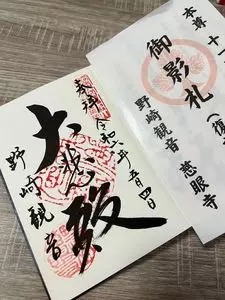 奉拝
令和六年五月四日
大悲殿
野崎観音
本尊十一
御影札
(復
野崎観音
慈眼寺